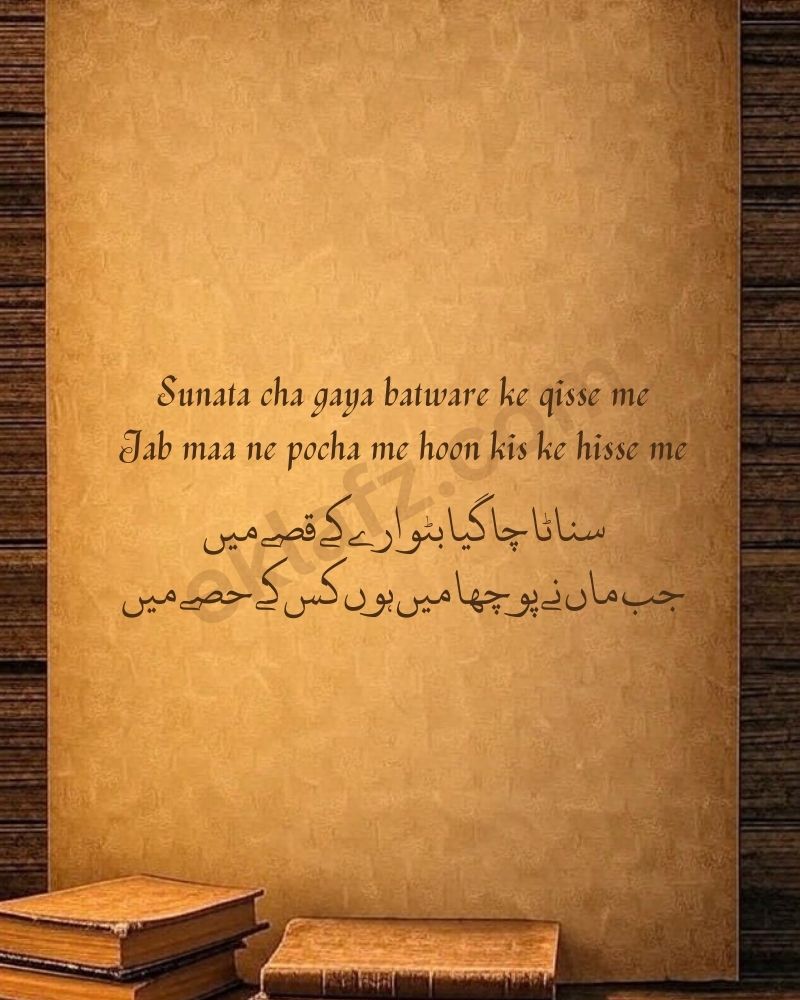 Sunata cha gaya batware ke qisse me
Jab maa ne pocha me hoon kis ke hisse me
سناٹا چا گیا بٹوارے کے قصے میں
جب ماں نے پوچھا میں ہوں کس کے حصے میں
eklafz.com